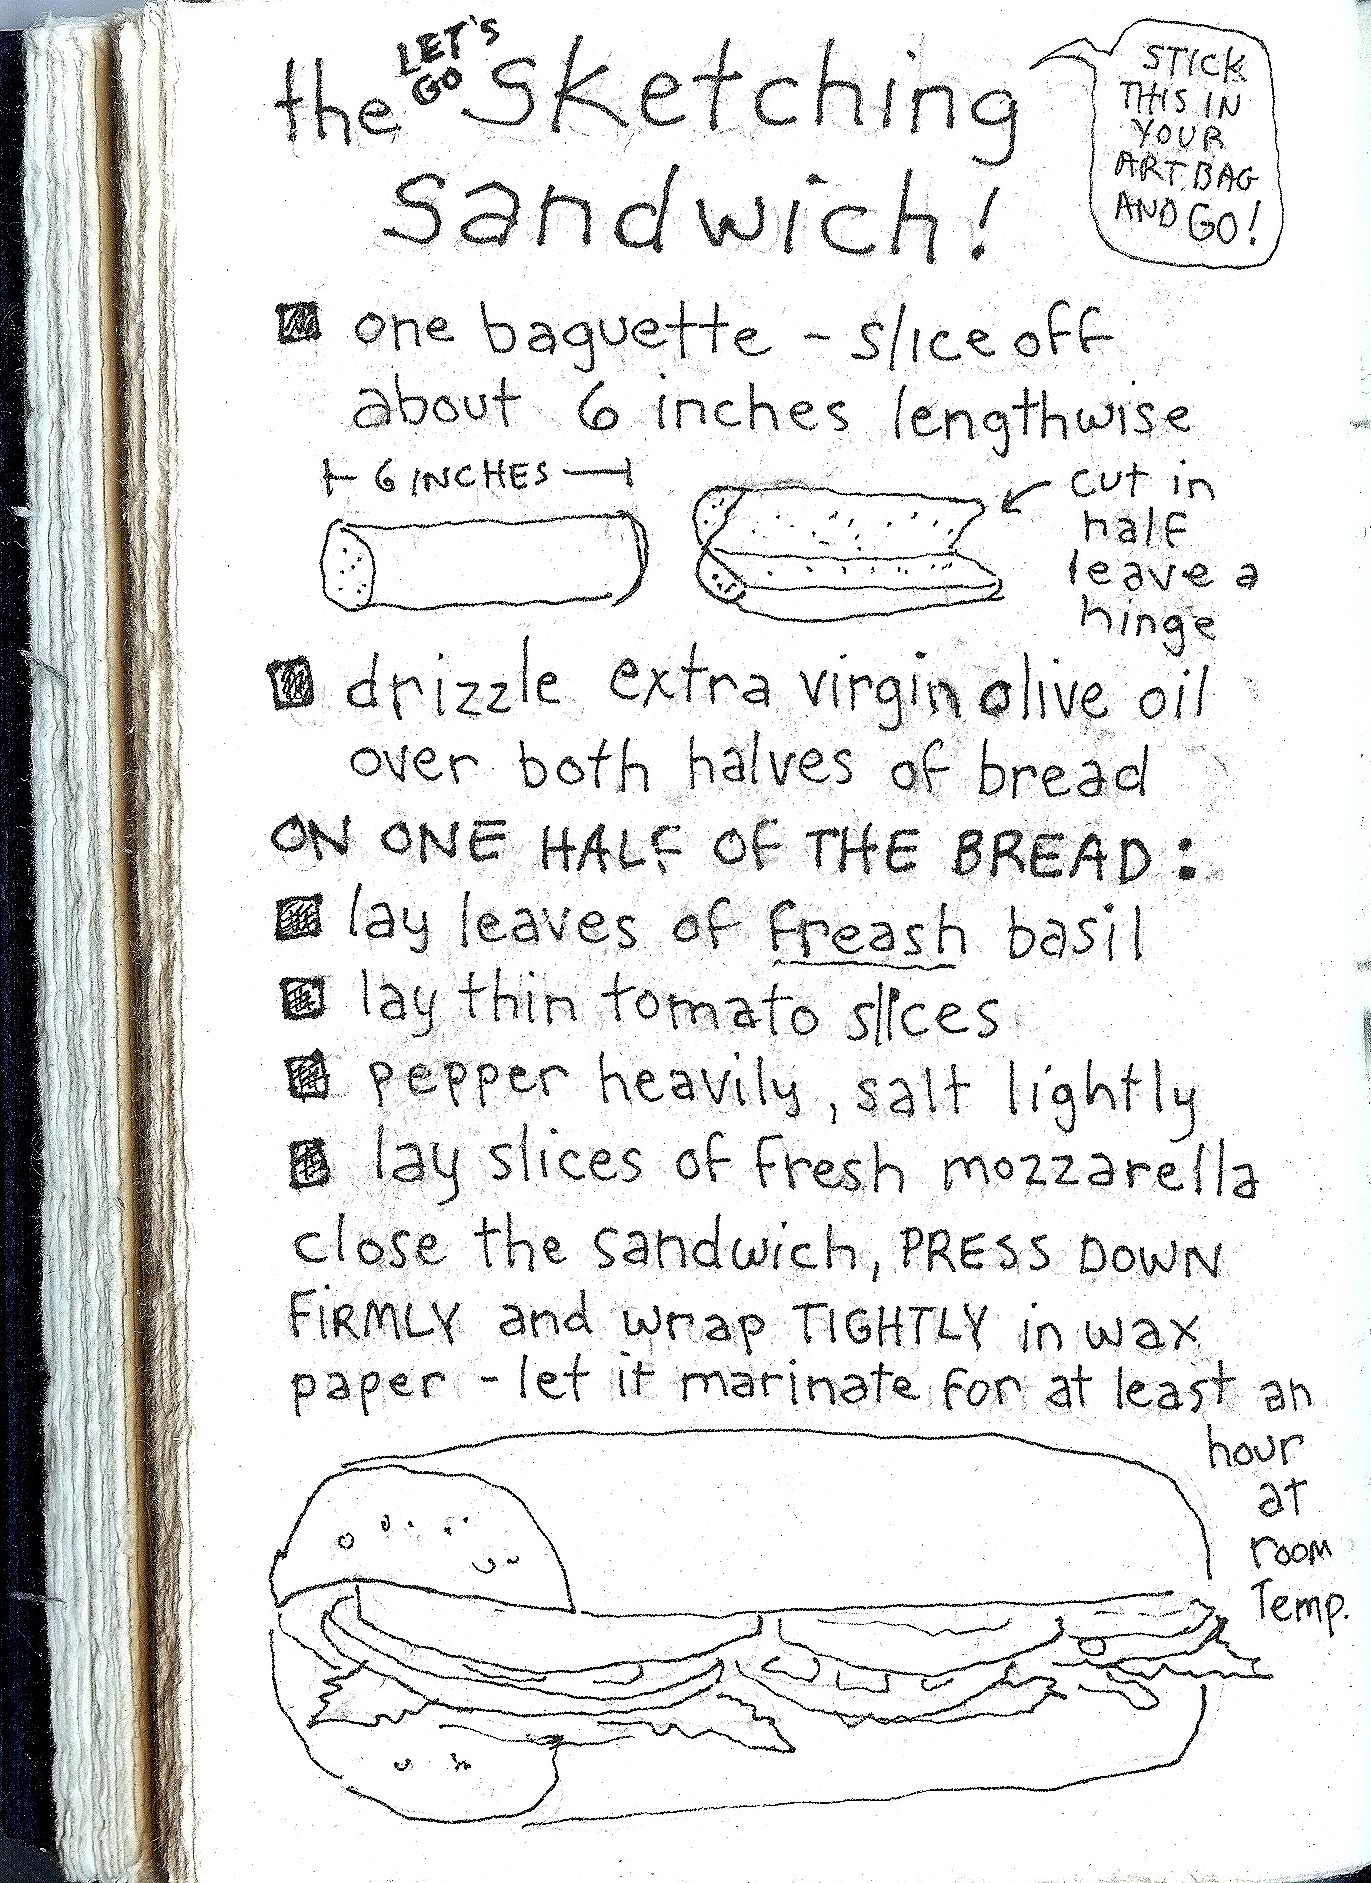 the LET'S GO Sketching
Sandwich!
STICK
THIS IN
YOUR
ART BAG
AND GO!
one baguette - slice off
about 6 inches lengthwise
6 INCHES
cut in
half
leave a
hinge
drizzle extra virgin olive oil
over both halves of bread
ON ONE HALF OF THE BREAD:
lay leaves of freash basil
lay thin tomato slices
pepper heavily, salt lightly
lay slices of fresh mozzarella
close the sandwich, PRESS DOWN
FIRMLY and wrap TIGHTLY in wax
paper - let it marinate for at least an
hour
at
room
Temp.